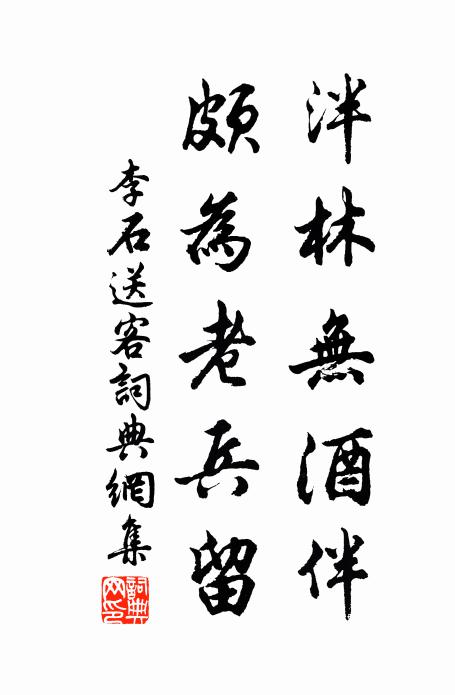 泮林無酒伴
頗為老兵留
李石送客詞典網集
詞典網印